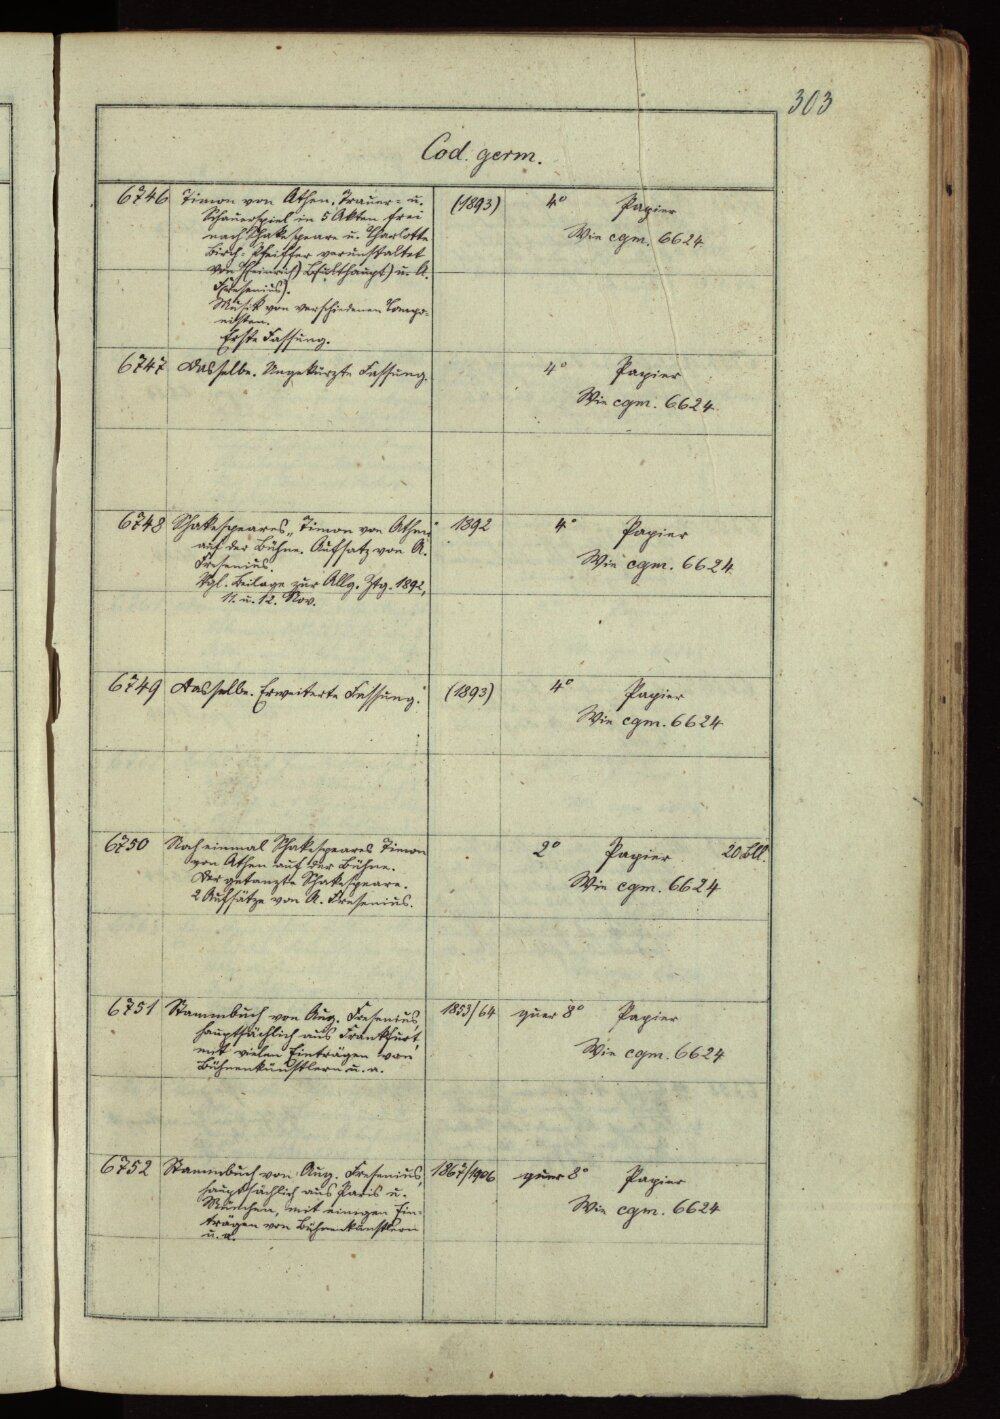 303
Cod. germ.
6746 Timon von Athen, Trauer- u. (1893) 4° Papier
Schauerspiel in 5 Akten frei Wie cgm. 6624
nach Shakespeare u. Charlotte
Birch-Pfeiffer verunstaltet
von H(einrich) B(ulthaupt) u. A.
F(resenius).
Musik von verschiedenen Compo-
nisten.
Erste Fassung.
6747 Dasselbe. Ungekürzte Fassung. 4° Papier
Wie cgm. 6624
6748 Shakespeares „Timon von Athen" 1892 4° Papier
auf der Bühne. Aufsatz von A. Wie cgm. 6624
Fresenius.
Vgl. Beilage zur Allg. Ztg. 1892,
11. u. 12. Nov.
6749 Dasselbe. Erweiterte Fassung. (1893) 4° Papier
Wie cgm. 6624
6750 Noch einmal Shakespeares Timon 2° Papier 20 Bll.
von Athen auf der Bühne. Wie cgm. 6624
Der getanzte Shakespeare.
2 Aufsätze von A. Fresenius.
6751 Stammbuch von Aug. Fresenius, 1853/64 quer 8° Papier
hauptsächlich aus Frankfurt, Wie cgm. 6624
mit vielen Einträgen von
Bühnenkünstlern u. a.
6752 Stammbuch von Aug. Fresenius, 1867/1906 quer 8° Papier
hauptsächlich aus Paris u. Wie cgm. 6624
München, mit einigen Ein-
trägen von Bühnenkünstlern
u. a.